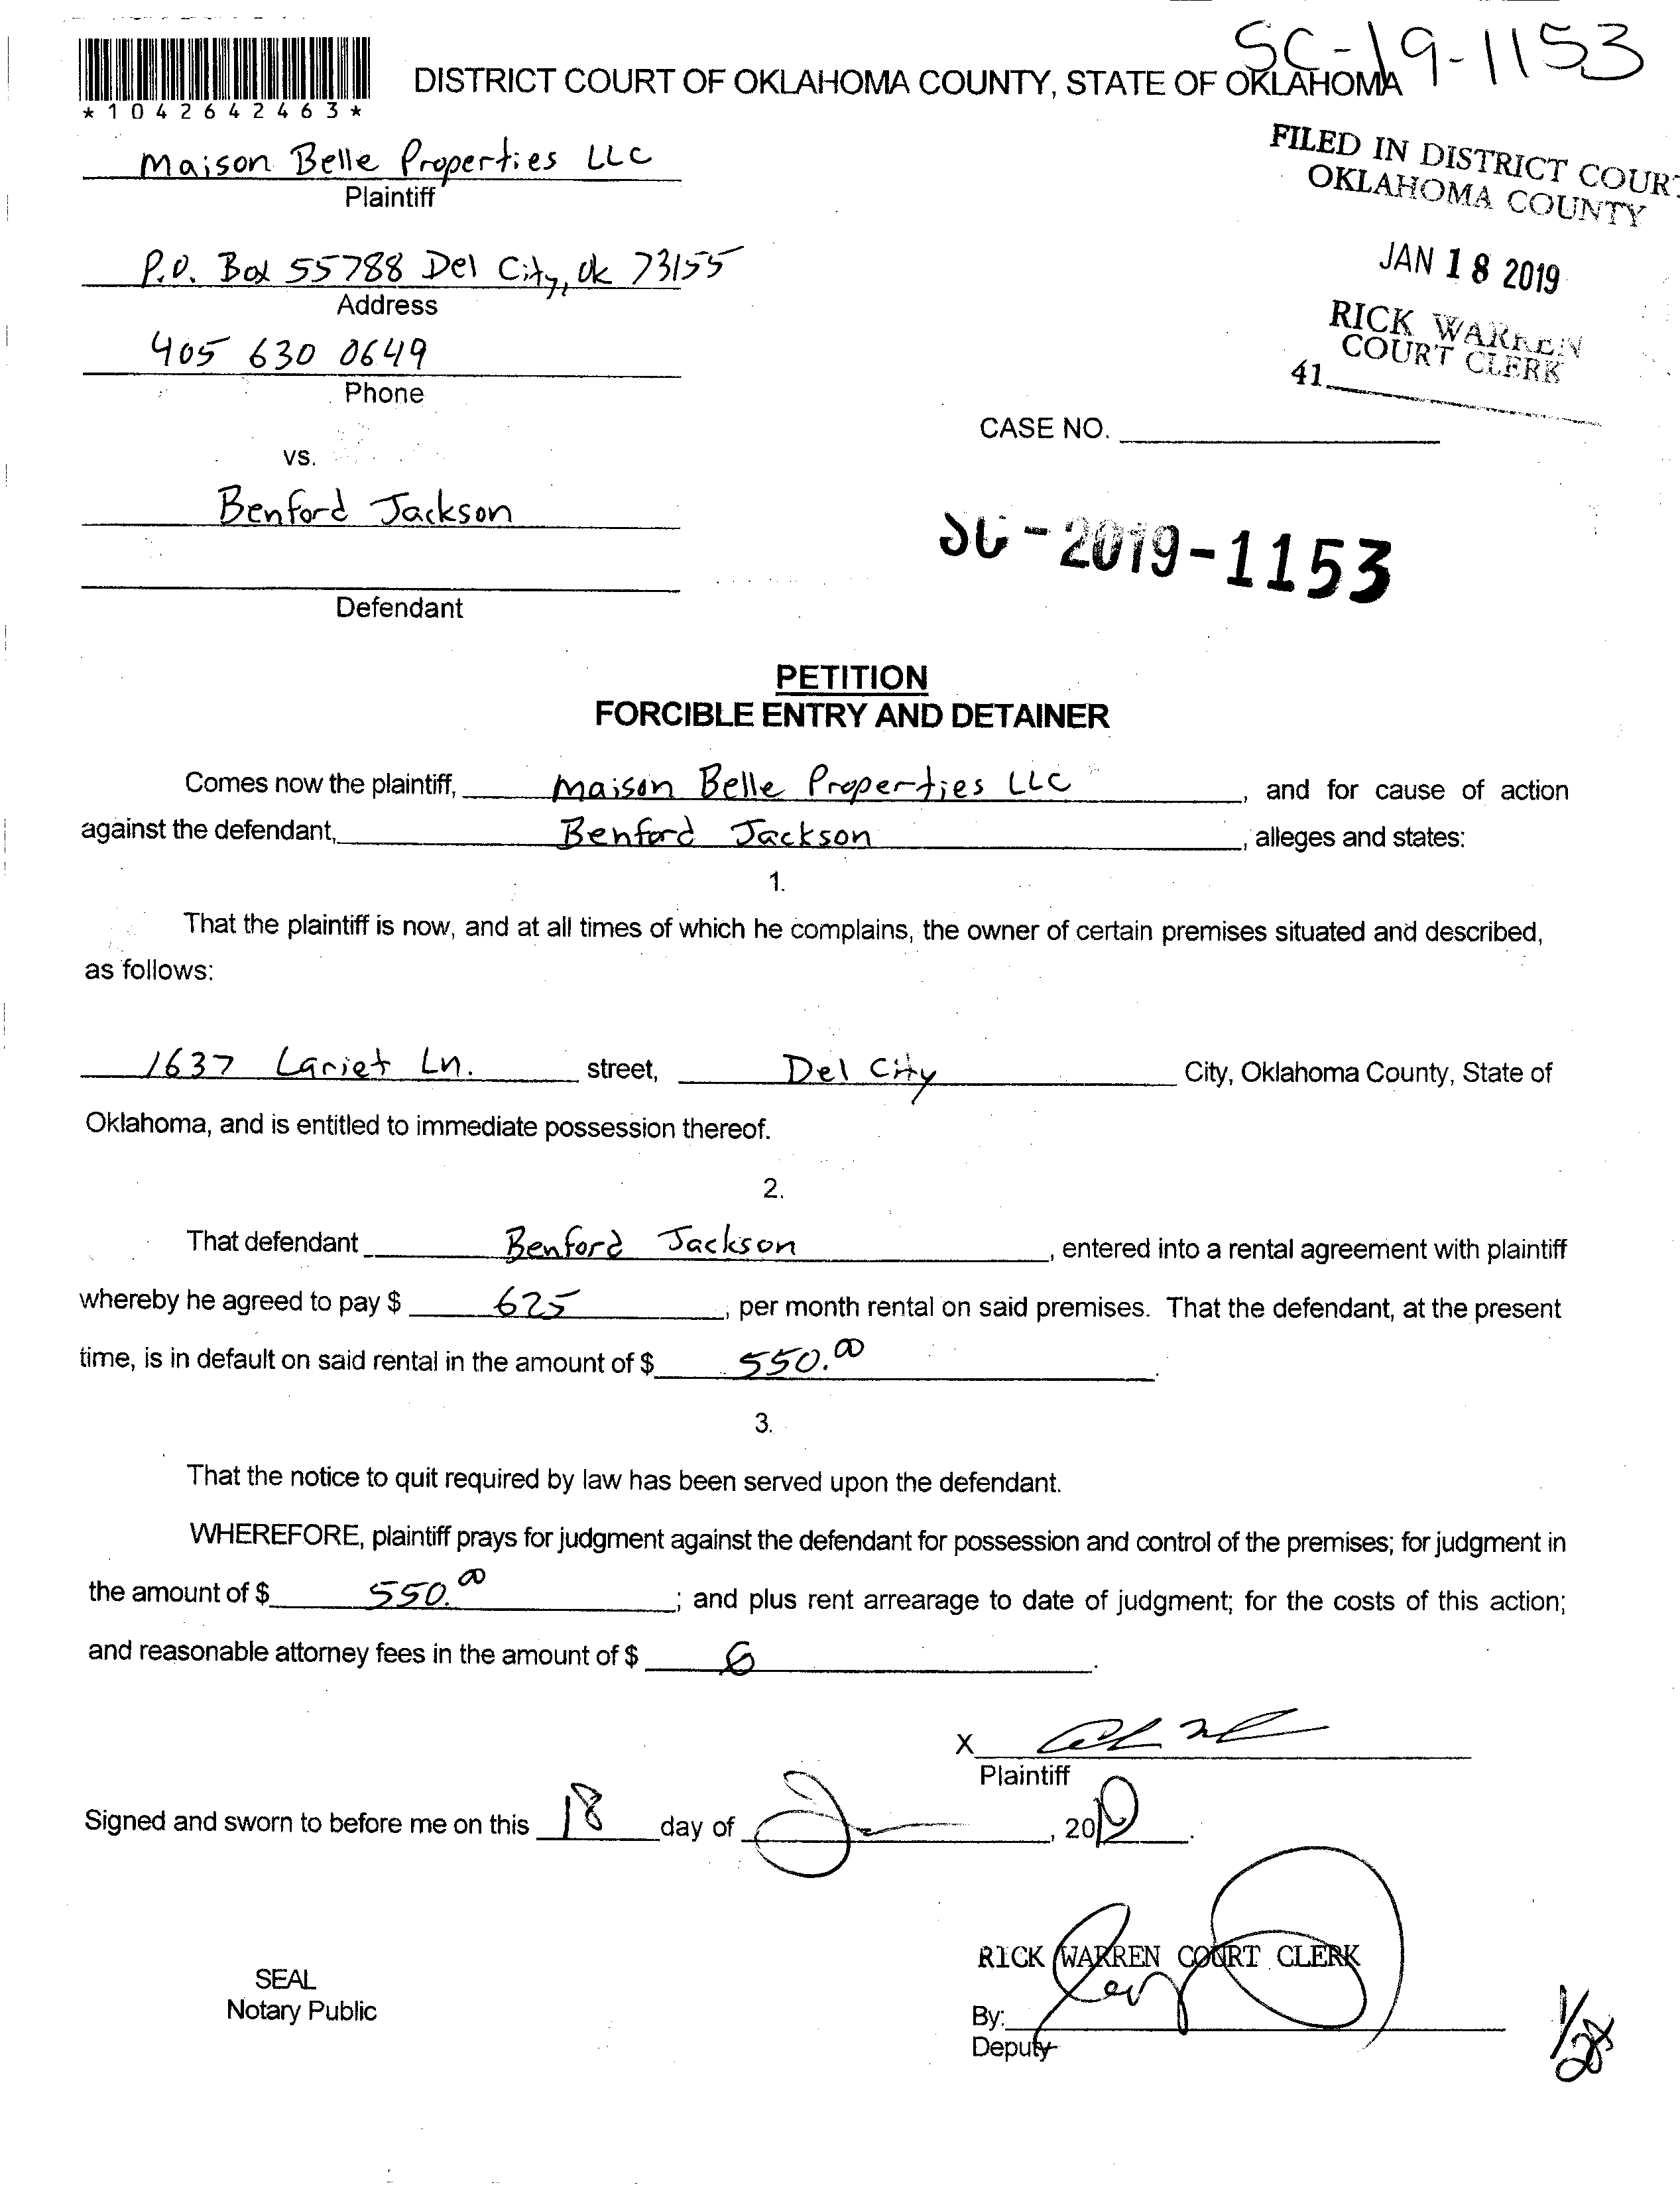 SC-19-1153
*1042642463*
DISTRICT COURT OF OKLAHOMA COUNTY, STATE OF OKLAHOMA
FILED IN DISTRICT COURT
OKLAHOMA COUNTY
JAN 18 2019
RICK WARREN
COURT CLERK
41
Maison Belle Properties LLC
Plaintiff
P.O. Box 55788 Del City, Ok 73155
Address
405 630 0649
Phone
CASE NO.
vs.
Benford Jackson
SC-2019-1153
Defendant
PETITION
FORCIBLE ENTRY AND DETAINER
Comes now the plaintiff, Maison Belle Properties LLC, and for cause of action
against the defendant, Benford Jackson, alleges and states:
1.
That the plaintiff is now, and at all times of which he complains, the owner of certain premises situated and described,
as follows:
1637 Lariet Ln. street, Del City City, Oklahoma County, State of
Oklahoma, and is entitled to immediate possession thereof.
2.
That defendant Benford Jackson, entered into a rental agreement with plaintiff
whereby he agreed to pay $ 625, per month rental on said premises. That the defendant, at the present
time, is in default on said rental in the amount of $ 550.00.
3.
That the notice to quit required by law has been served upon the defendant.
WHEREFORE, plaintiff prays for judgment against the defendant for possession and control of the premises; for judgment in
the amount of $ 550.00; and plus rent arrearage to date of judgment; for the costs of this action;
and reasonable attorney fees in the amount of $ .
X
Plaintiff
Signed and sworn to before me on this 18 day of , 20
RICK WARREN COURT CLERK
SEAL
Notary Public
By:
Deputy
1/28